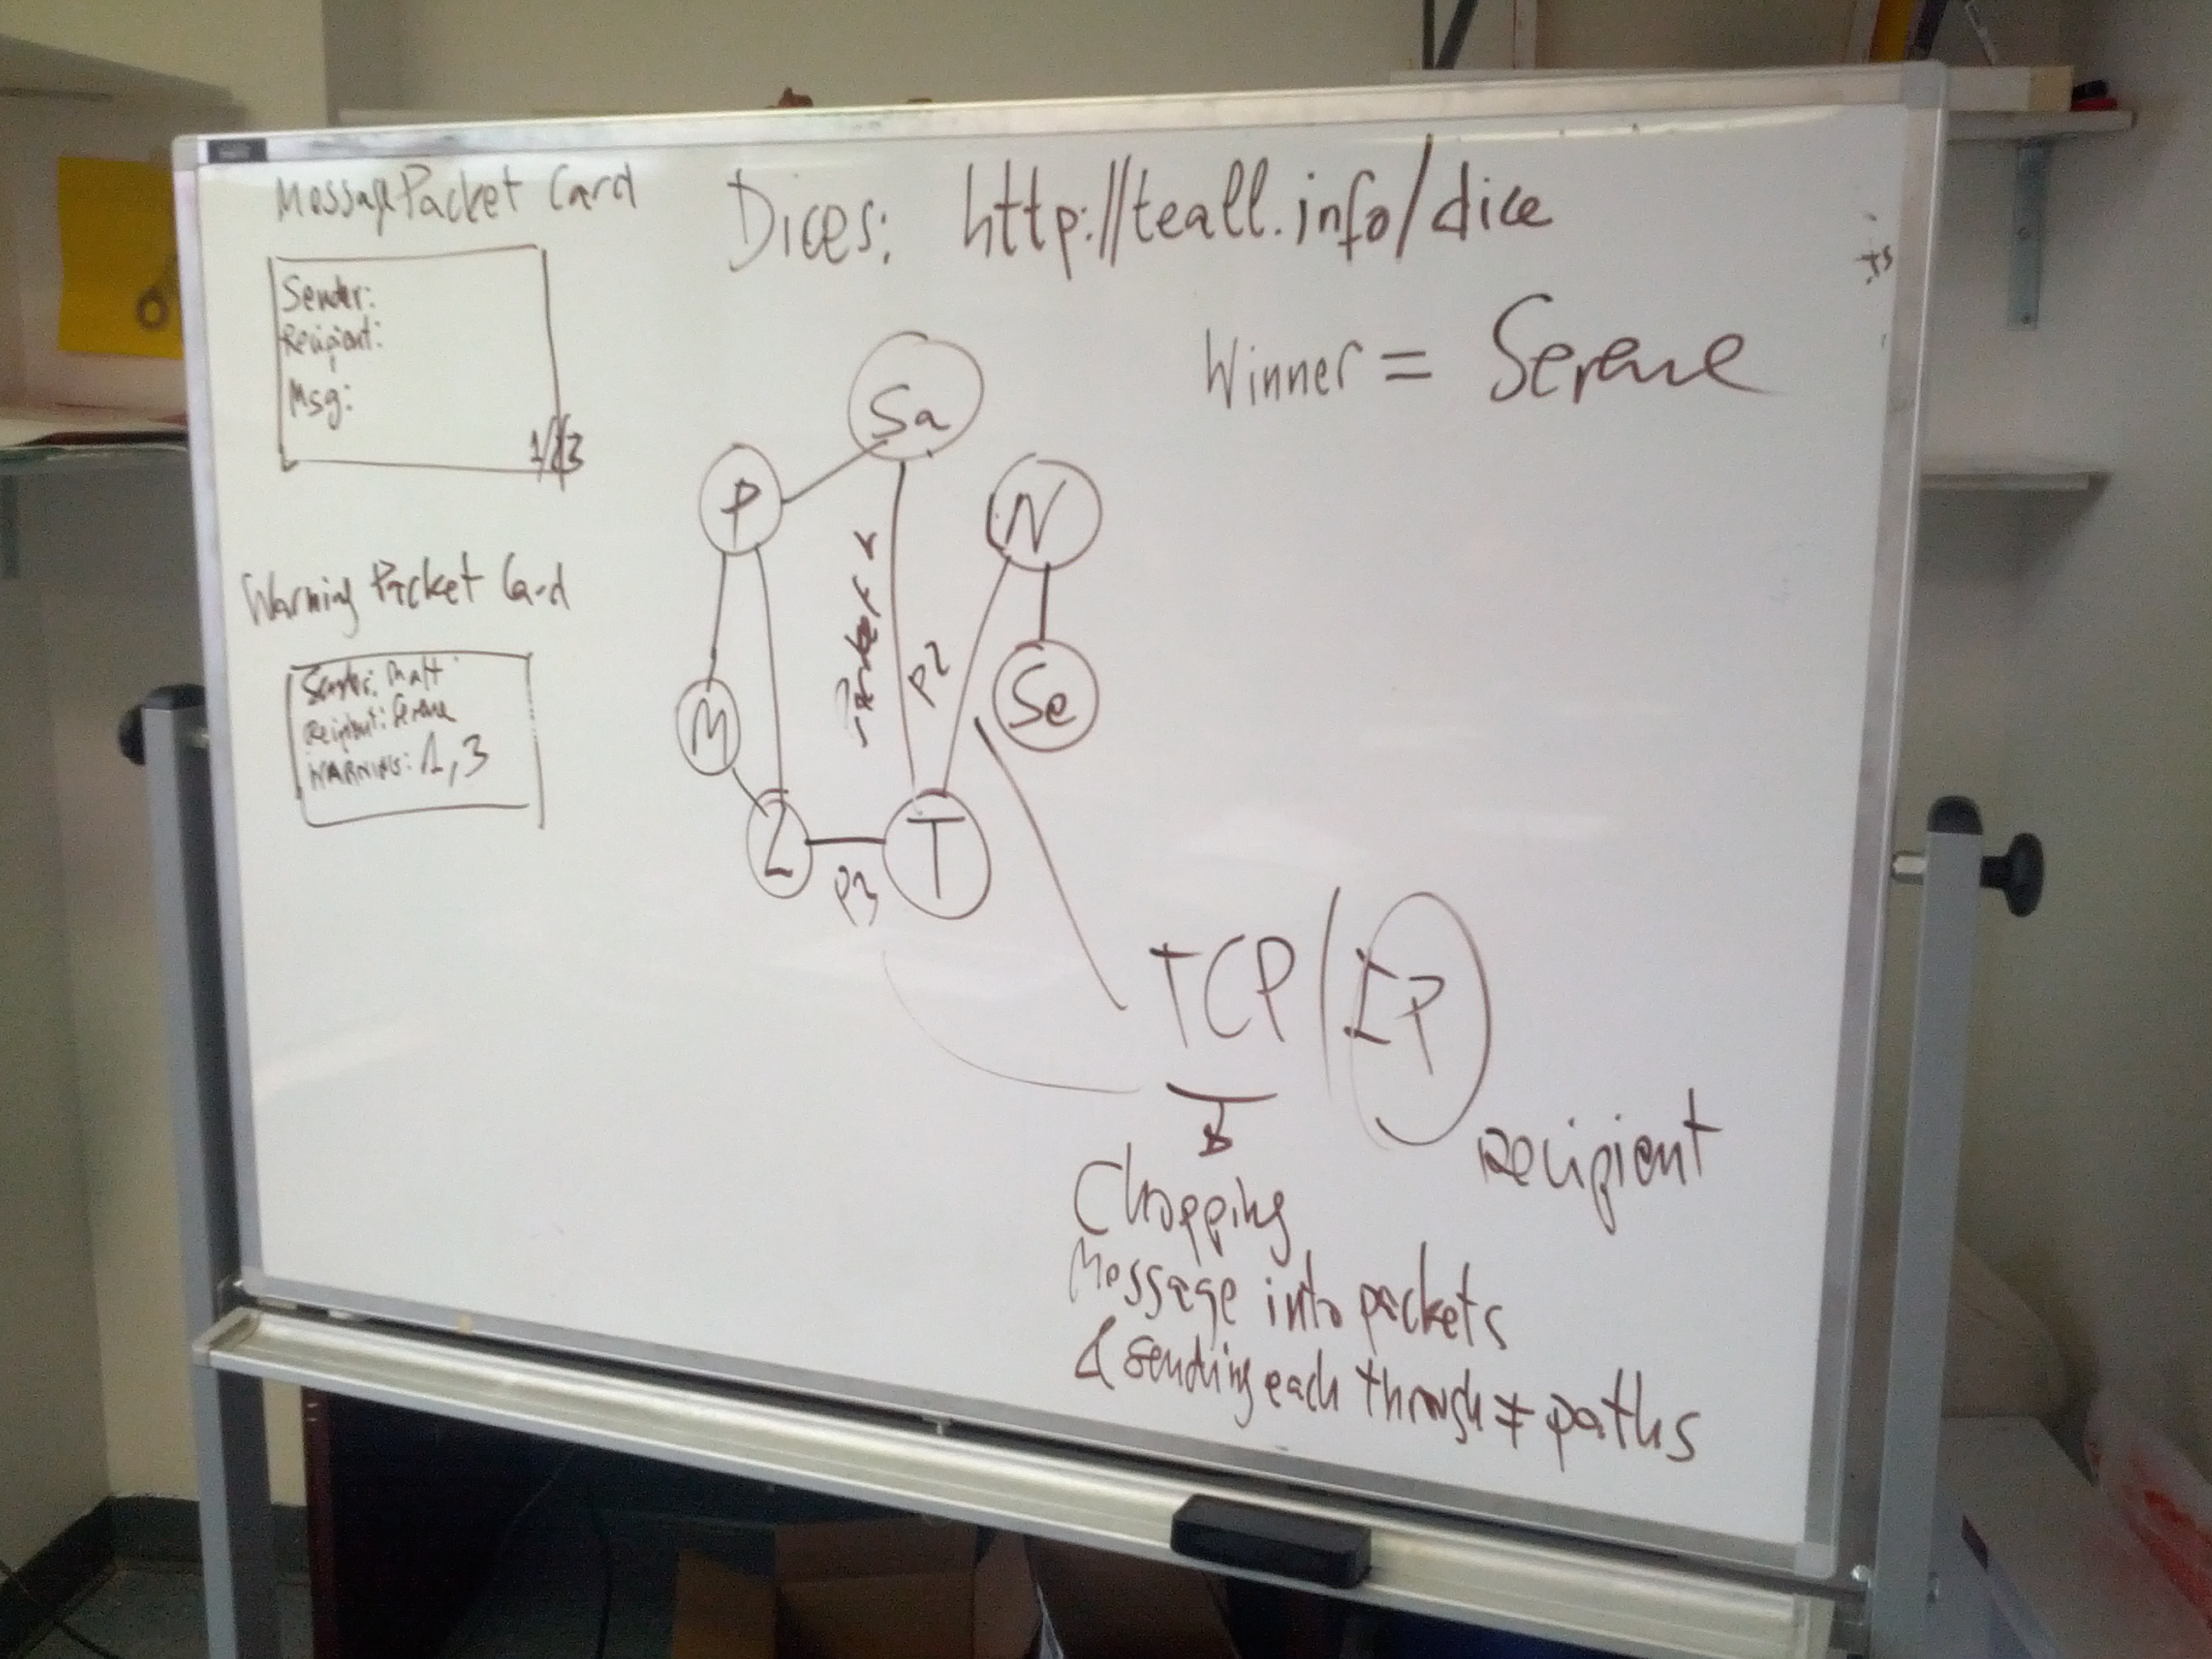 Message Packet Card
Sender:
Recipient:
Msg:
Dices: http://teall.info/dice
Winner = Serene
Sa
P
N
M
Se
P2
Z
T
P3
Warning Packet Card
Sender: Matt
Recipient: Serene
WARNING: 1,3
TCP/IP
Recipient
Chopping
Message into packets
& sending each through ≠ paths